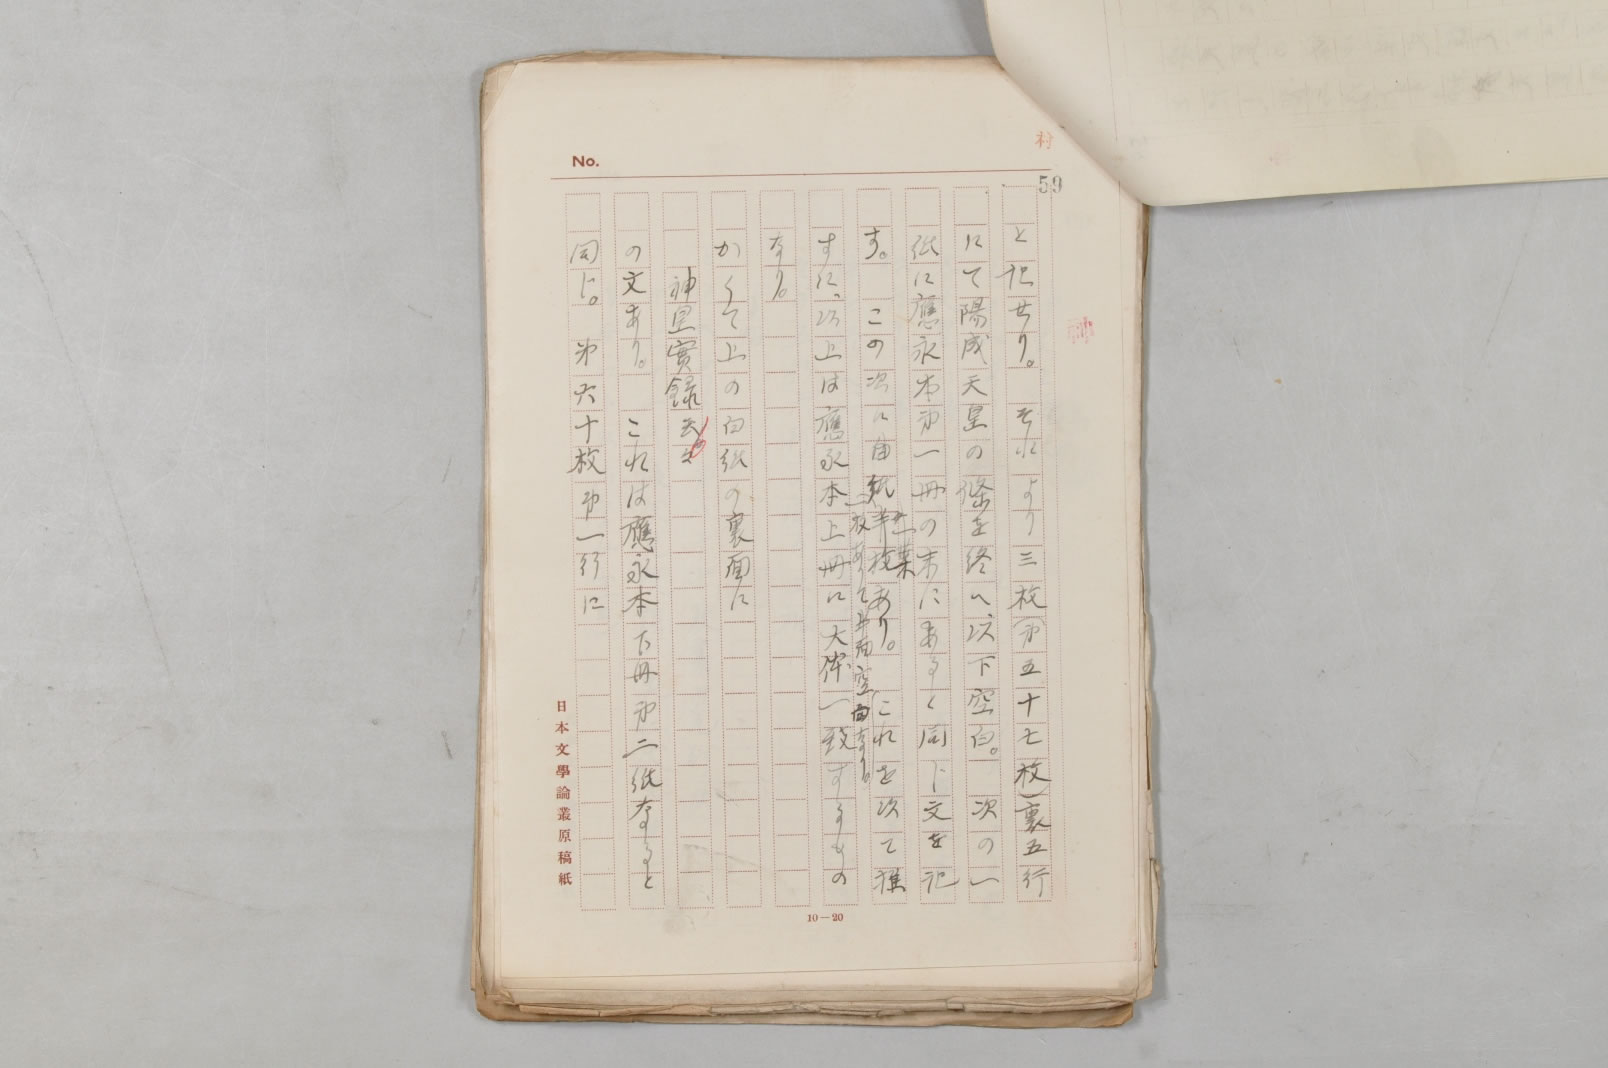 No.
村
59
と記せり。 それより三枚(第五十七枚)裏五行
にて陽成天皇の條を終へ、以下空白。 次の一
紙に應永本第一冊の末にあると同じ文を記
す。 この次に白紙半枚あり。 これを以て推
一葉
一枚ありて半面空白なり。
すに、以上は應永本上冊に大体一致するもの
なり。
かくて上の白紙の裏面に
神皇實録云々
の文あり。 これは應永本下冊第二紙なると
同じ。 第六十枚第一行に
日本文學論叢原稿紙
10—20